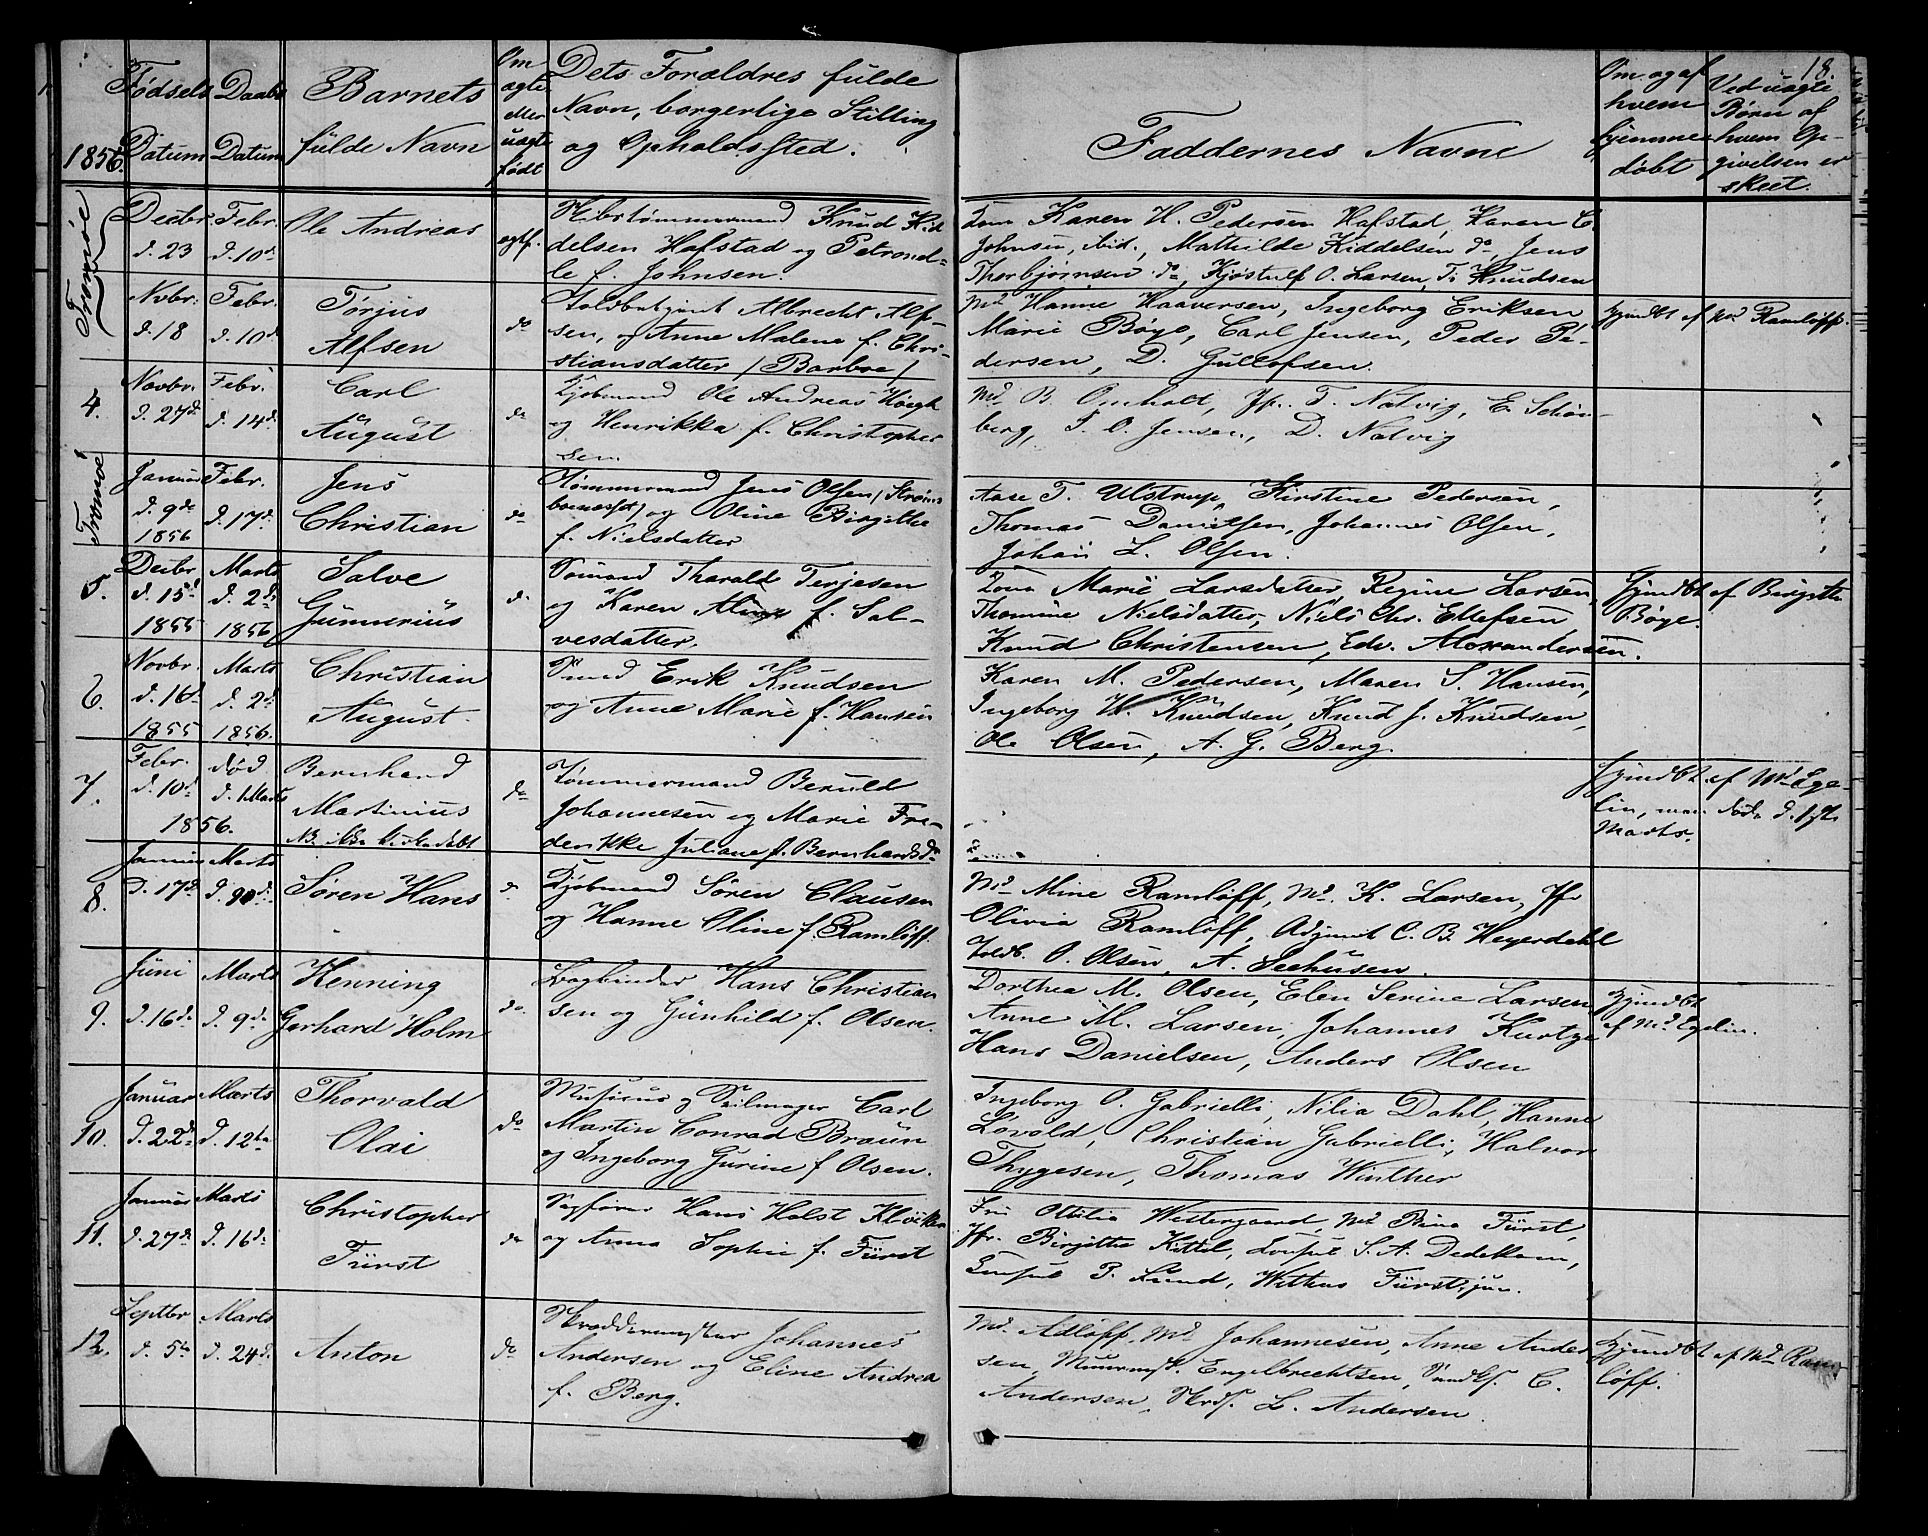 18.
1856.
Fødsels Datum
Daabs Datum
Barnets fulde Navn
Om ægte eller uægte født
Dets Forældres fulde
Navn, borgerlige Stilling
og Opholdssted.
Faddernes Navne
Om og af hvem hjemmedøbt
Ved uægte Børn af hvem Opgivelsen er skeet.
Tromøe
Decbr. d. 23
Febr. d. 10de
Ole Andreas
egtf.
Skibstømmermand Knud Kid-
delsen Hafstad og Petronel-
le f. Johnsen.
Karen H. Pedersen Hafstad, Karen C.
Johnsen, ibid., Mathilde Kiddelsen do, Jens
Thorbjørnsen do, Kjøstulf O. Larsen, T. Knudsen
Novbr. d. 18
Febr. d. 10de
Tørjus
Alfsen
do
Toldbetjent Albrecht Alf-
sen, og Anne Malene f. Chri-
stiansdatter /Barboe/
Md Hanne Haaversen, Ingeborg Eriksen
Marie Bøge, Carl Jensen, Peder Pe-
dersen, D. Gulløfsen.
Hjmdbt af Md Ramløff.
4.
Novbr. d. 27de
Febr. d. 14de
Carl
August
do
Kjøbmand Ole Andreas Høegh
og Henrikka f. Christopher
sen
Md B. Omholt, Jfr. T. Natvig, E. Schøn-
berg, T. O. Jensen, D. Natvig
Tromøe
Januar d. 9de 1856
Febr. d. 17de
Jens
Christian
do
Tømmermand Jens Olsen /Strøms
boenæsset/ og Oline Birgithe
f. Nielsdatter
Aase T. Ulstrup, Kirstine Pedersen,
Thomas Danielsen, Johannes Olsen,
Johan L. Olsen.
5.
Decbr d. 15de 1855
Marts d. 2de 1856
Salve
Gunnerius
do
Sømand Tharald Terjesen
og Karen Aline f. Sal-
vesdatter.
Kona Marie Larsdatter, Regine Larsen,
Thomine Nielsdatter, Niels Chr. Ellefsen,
Knud Christensen, Edv. Alexandersen.
Hjmdbt af Birgitte
Bøge.
6.
Novbr. d. 16de 1855
Marts d. 2de 1856.
Christian
August.
Smed Erik Knudsen
og Anne Marie f. Hansen
Karen M. Pedersen, Maren S. Hansen,
Ingeborg H. Knudsen, Knud J. Knudsen,
Ole Olsen, A. G. Berg.
7.
Febr. d. 10de
død d. 1 Marts
1856.
Bernhard
Martinius
NB. ikke kirkedøbt
do
Tømmermand Beruld
Johannesen og Marie Fre-
derikke Juliane f. Bernhardsdr
Hjmdbt af Md Ege-
lin, men døde d. 1ste
Marts.
8.
Januar d. 17de
Marts d. 20de
Søren Hans
do
Kjøbmand Søren Clausen
og Hanne Oline f. Ramløff.
Md Mine Ramløff, Md. K. Larsen, Jfr
Olivia Ramløff, Adjunct C. B. Heyerdahl
Toldb. O. Olsen, A. Seehusen.
9.
Juni d. 16de
Marts d. 9de
Henning
Gerhard Holm
do
Bogbinder Hans Christian
sen og Gunhild f. Olsen.
Dorthea M. Olsen, Elen Serine Larsen
Anne M. Larsen, Johannes Kurtze
Hans Danielsen, Anders Olsen
Hjmdbt
af Md Egelin.
10.
Januar d. 22de
Marts d. 12te
Thorvald
Olai
do
Musicus og Seilmager Carl
Martin Conrad Braun
og Ingeborg Gurine f. Olsen.
Ingeborg O. Gabrielli, Nilia Dahl, Hanne
Løvold, Christian Gabrielli, Halvor
Thygesen, Thomas Winther
11.
Januar d. 27de
Marts d. 16de
Christopher
Fürst
do
Sagfører Hans Holst Kløcker
og Anna Sophie f. Fürst
Fru Ottilia Westergaard, Md Rina Fürst,
Jfr. Birgitte Kittel, Consul S. A. Dedekam,
Consul P. Lund, Witthus Fürst jun.
12.
Septbr d. 5te
Marts d. 24de
Anton
do
Skræddermester Johannes
Andersen og Eline Andrea
f. Berg.
Md. Adløff, Md Johannesen, Anne Ander
sen, Muurmst. Engelbrechtsen, Snedks. C.
Andersen, Skrds. L. Andersen.
Hjmdbt af Md Ram-
løff.